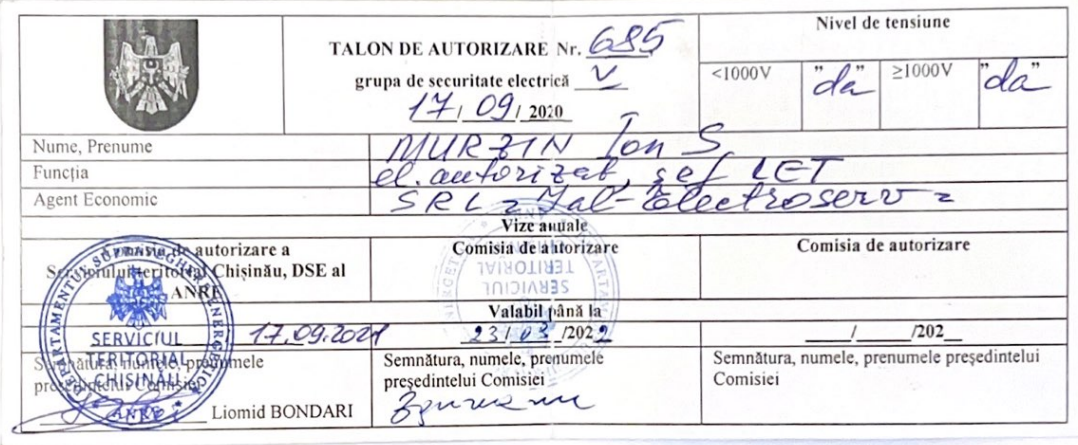 TALON DE AUTORIZARE Nr. 685
grupa de securitate electrică V
17/09/2020
Nivel de tensiune
<1000V "da" ≥1000V "da"
Nume, Prenume MURZIN Ion S
Funcția el. autorizat, șef LET
Agent Economic SRL Ial-Electroserv
Vize anuale
Comisia de autorizare a Serviciului teritorial Chișinău, DSE al ANRE
Comisia de autorizare
Comisia de autorizare
Valabil până la
17.09.2021
23/03/2022
/ /202
Semnătura, numele, prenumele președintelui Comisiei
Liomid BONDARI
Semnătura, numele, prenumele președintelui Comisiei
Semnătura, numele, prenumele președintelui Comisiei
DEPARTAMENTUL SUPRAVEGHERE ENERGETICĂ
SERVICIUL
TERITORIAL
CHIȘINĂU
ANRE
SERVICIUL
TERITORIAL